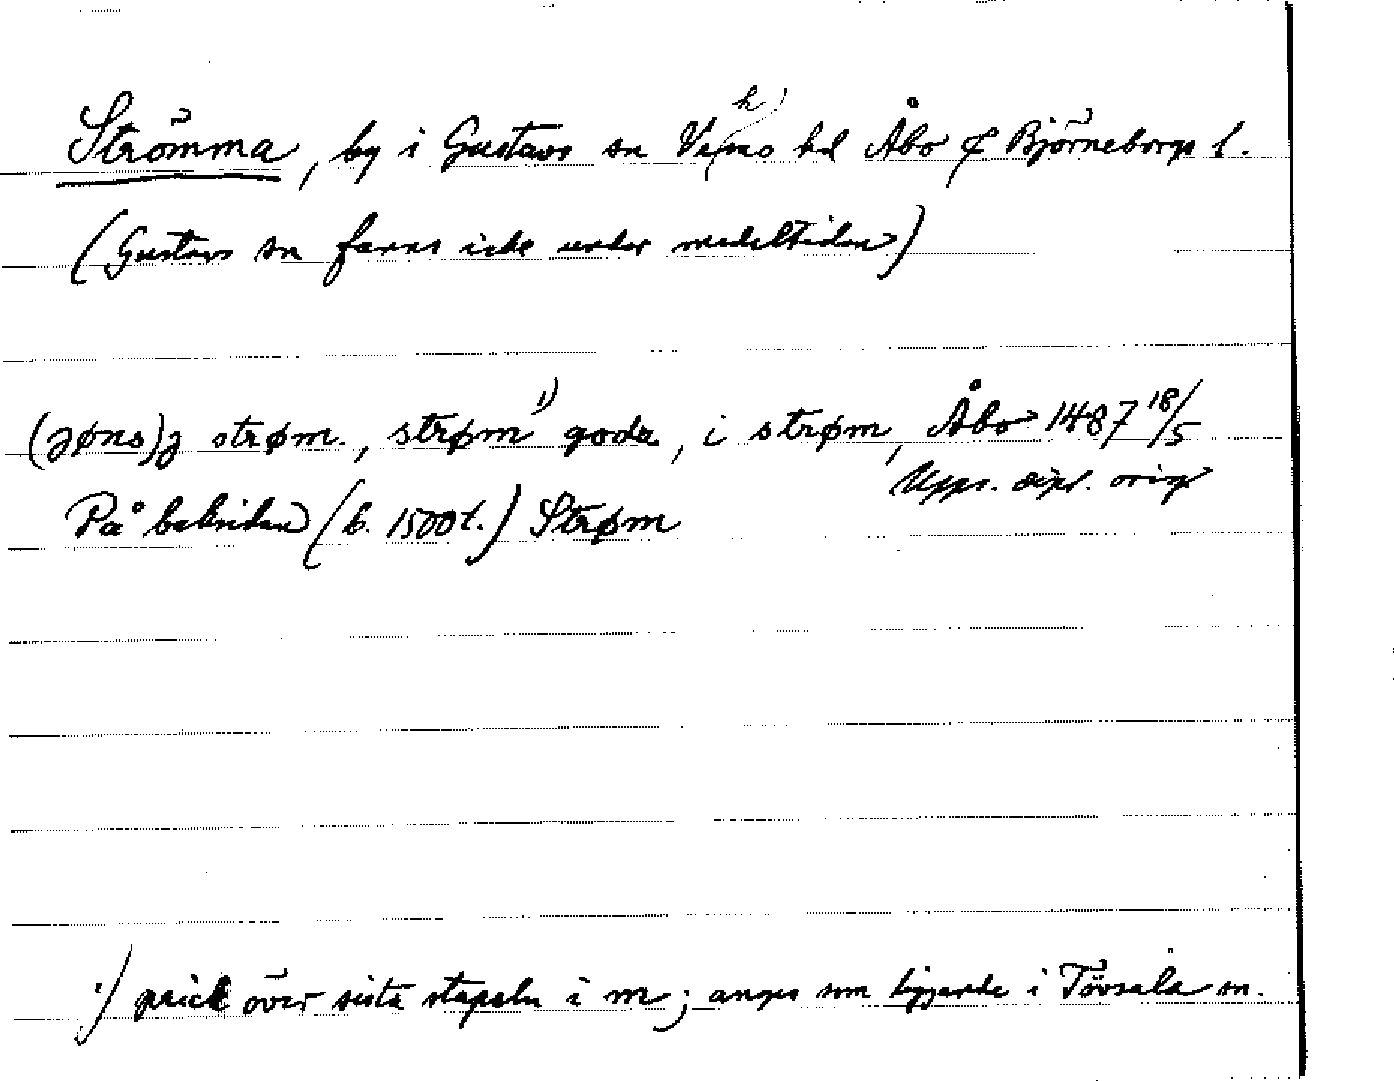 Strömma, by i Gustavs sn Vehmo hd Åbo & Björneborgs l.
(Gustavs sn fanns icke under medeltiden)
(jøns)j strøm., strøm 1) goda, i strøm, Åbo 1487 18/5
Upps. dipl. orig
På baksidan (b. 1500t.) Strøm
1) prick över sista stapeln i m; anges som liggande i Tövsala sn.